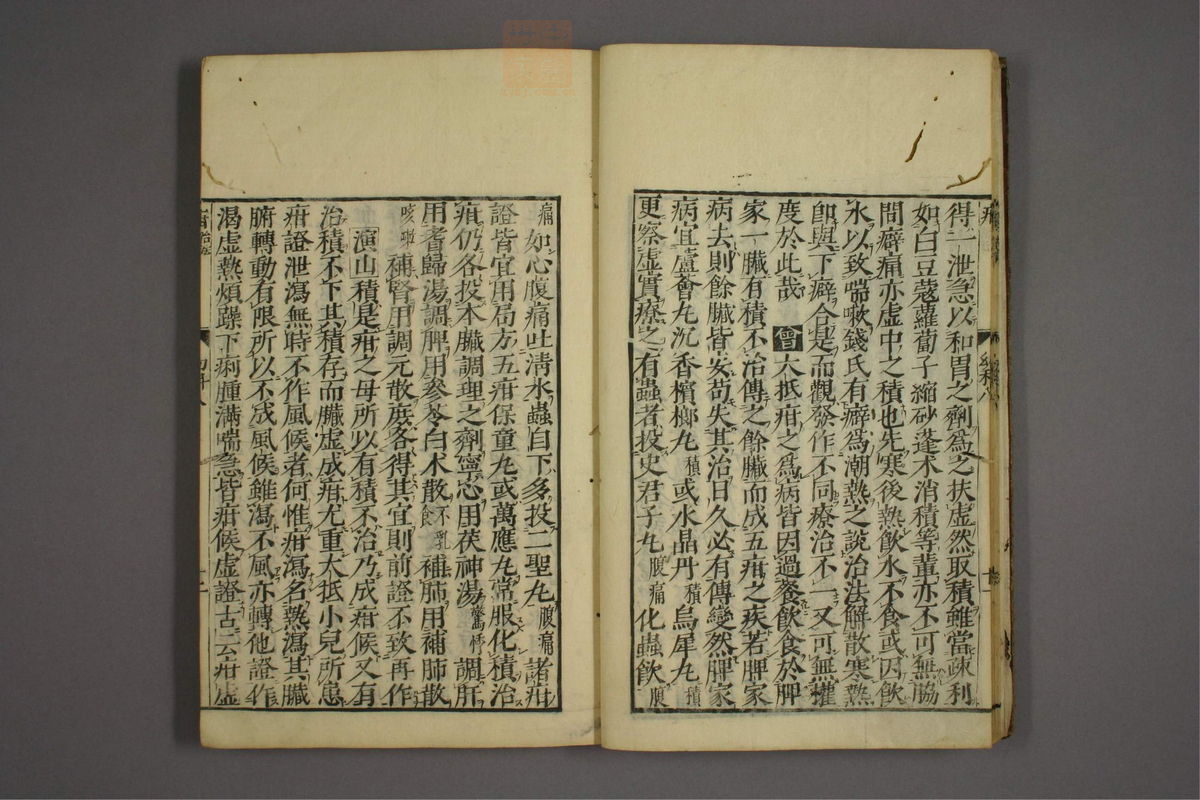 得一泄急以和胃之劑爲之扶虛然取積雖當疎利
如白豆蔻蘿蔔子縮砂蓬朮消積等輩亦不可無脇
間癖痛亦虛中之積也先寒後熱飲水不食或因飲
水以致喘嗽錢氏有癖爲潮熱之說治法解散寒熱
卽與下癖合是而觀發作不同療治不一又可無權
度於此哉 曾 大抵疳之爲病皆因過餐飲食於脾
家一臟有積不治傳之餘臟而成五疳之疾若脾家
病去則餘臟皆安苟失其治日久必有傳變然脾家
病宜蘆薈丸沉香檳榔丸積或水晶丹積烏犀丸積
更察虛實療之有蟲者投史君子丸腹痛化蟲飲腹
痛如心腹痛吐淸水蟲自下多投二聖丸腹痛諸疳
證皆宜用局方五疳保童丸或萬應丸常服化積治
疳仍各投本臟調理之劑寧心用茯神湯驚悸調肝
用耆歸湯調脾用參苓白朮散不乳食補肺用補肺散
咳嗽補腎用調元散庶各得其宜則前證不致再作
演山積是疳之母所以有積不治乃成疳候又有
治積不下其積存而臟虛成疳尤重大抵小兒所患
疳證泄瀉無時不作風候者何惟疳瀉名熱瀉其臟
腑轉動有限所以不成風候雖瀉不風亦轉他證作
渴虛熱煩躁下痢腫滿喘急皆疳候虛證古云疳虛